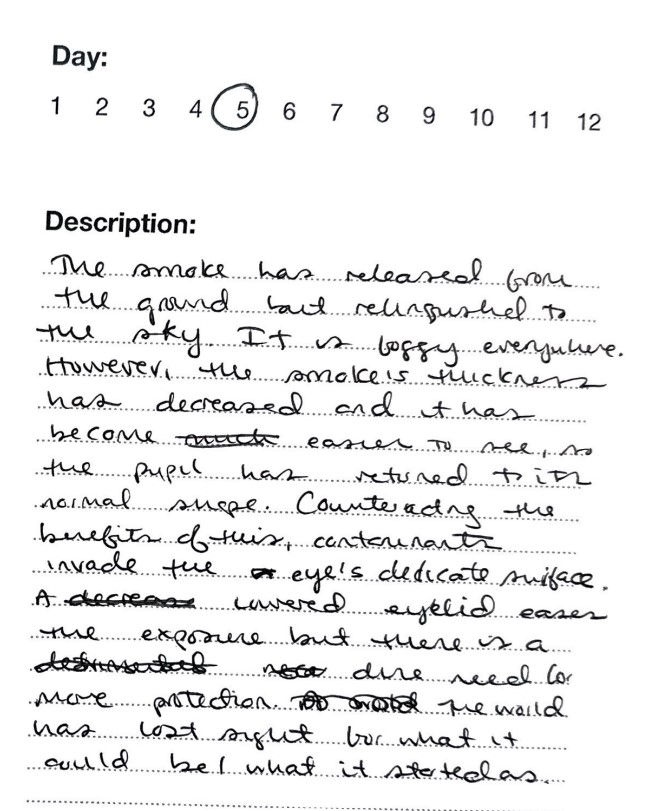 Day:
1 2 3 4 5 6 7 8 9 10 11 12
Description:
The smoke has released from
the ground but relinguished to
the sky. It is foggy everywhere.
However, the smoke's thickness
has decreased and it has
become much easier to see, so
the pupil has returned to its
normal shape. Counteracting the
benefits of this, contaminants
invade the eye's dedicate surface.
A decrease lowered eyelid eases
the exposure but there is a
detrimental dire need for
more protection. The world
has lost sight for what it
could be / what it started as.